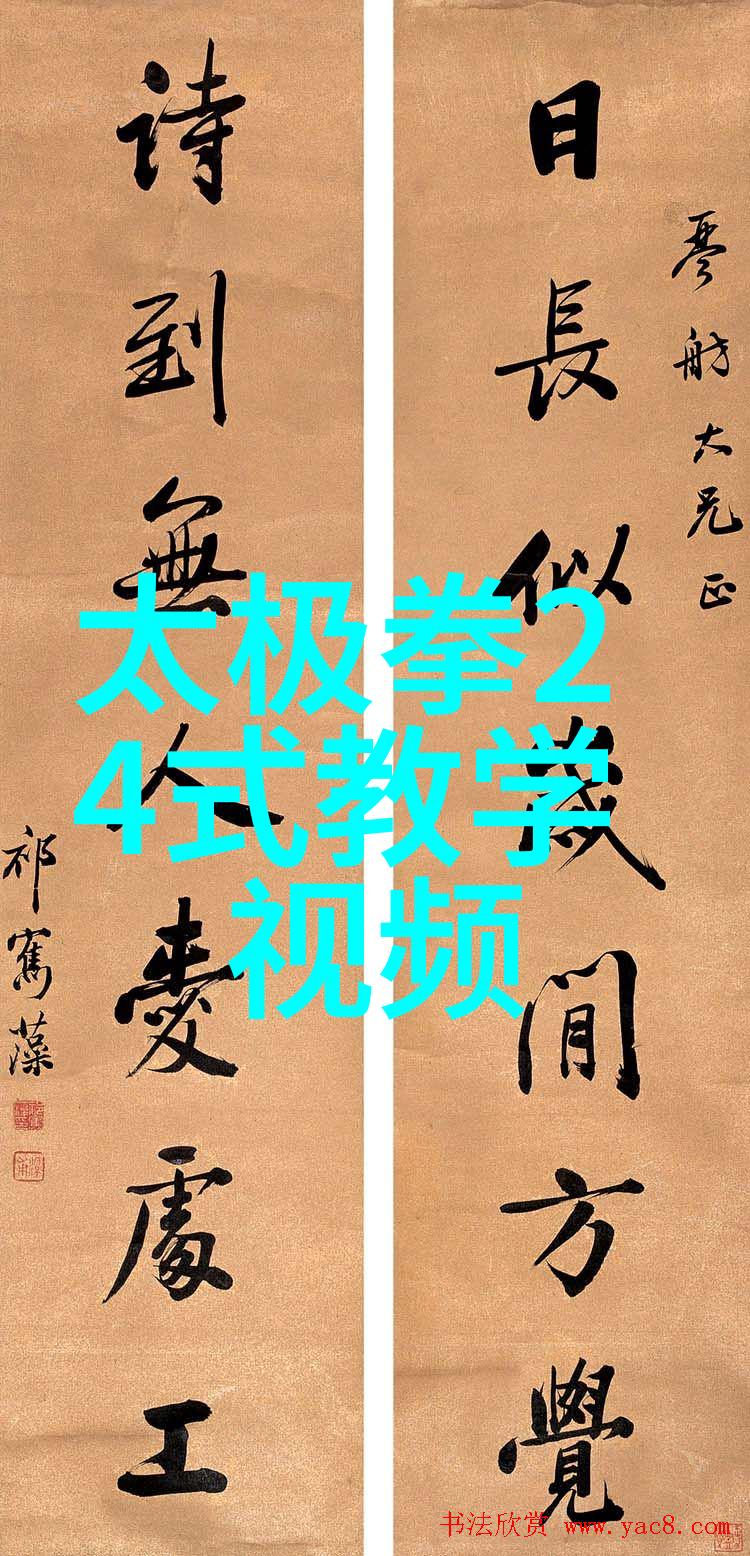 琴舫大兄正
日長似歲閒方覺
詩到無人愛處工
祁寯藻
太极拳2
4式教学
视频
书法欣赏 www.yac8.com